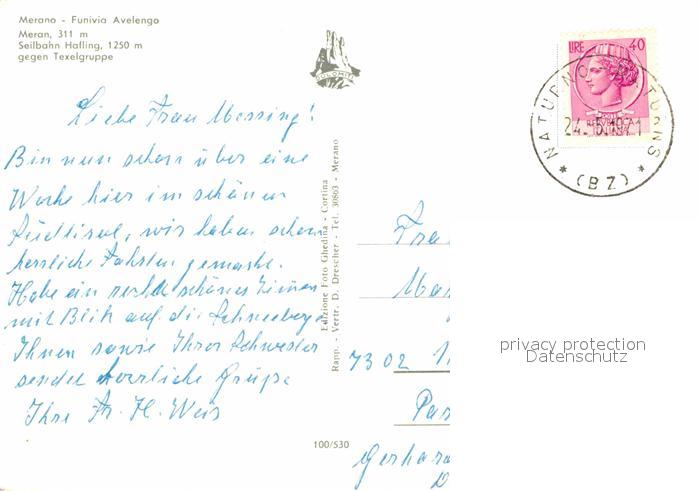 Merano - Funivia Avelengo
Meran, 311 m
Seilbahn Hafling, 1250 m
gegen Texelgruppe
DOLOMITI
LIRE 40
NATURNO - NATURNS
24.-5.1971
* (BZ) *
Liebe Frau Messing!
Bin nun schon über eine
Woche hier im schönen
Südtirol, wir haben schon
herrliche Fahrten gemacht.
Habe ein recht schönes Zimmer
mit Blick auf die Schneeberge
Ihnen sowie Ihrer Schwester
sendet herrliche Grüße
Ihre Fr. H. Weis
Edizione Foto Ghedina - Cortina
Rapp. - Vertr. D. Drescher - Tel. 30803 - Merano
Frau
7302
Gerhard
100/530
privacy protection
Datenschutz